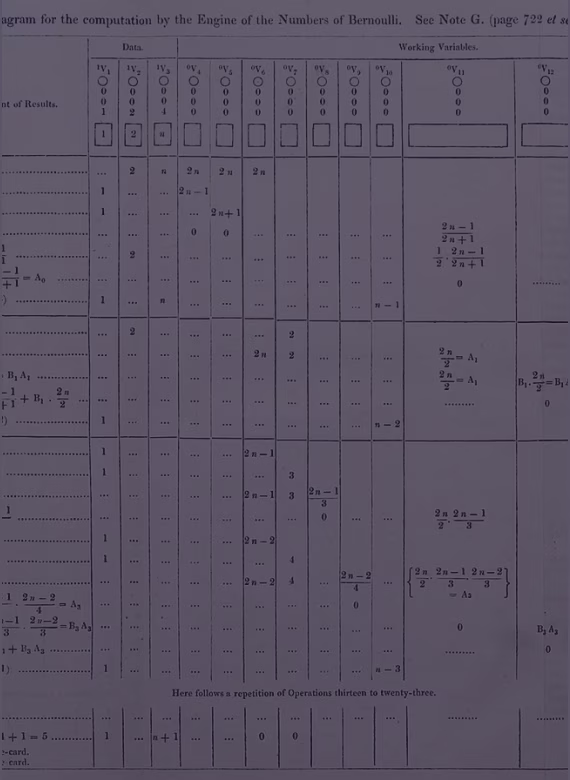 agram for the computation by the Engine of the Numbers of Bernoulli. See Note G. (page 722 et se
Data. Working Variables.
¹V₁ ¹V₂ ¹V₃ ⁰V₄ ⁰V₅ ⁰V₆ ⁰V₇ ⁰V₈ ⁰V₉ ⁰V₁₀ ⁰V₁₁ ⁰V₁₂
○ ○ ○ ○ ○ ○ ○ ○ ○ ○ ○ ○
0 0 0 0 0 0 0 0 0 0 0 0
nt of Results. 0 0 0 0 0 0 0 0 0 0 0 0
1 2 4 0 0 0 0 0 0 0 0 0
1 2 n
... 2 n 2n 2n 2n
1 ... ... 2n − 1
1 ... ... ... 2n + 1
... ... ... 0 0 ... ... ... ... ... (2n − 1)/(2n + 1)
... 2 ... ... ... ... ... ... ... ... 1/2 · (2n − 1)/(2n + 1)
−1/+1 = A₀ ... ... ... ... ... ... ... ... ... ... 0
) 1 ... n ... ... ... ... ... ... n − 1
... 2 ... ... ... ... 2
... ... ... ... ... 2n 2 ... ... ... 2n/2 = A₁
B₁ A₁ ... ... ... ... ... ... ... ... ... ... 2n/2 = A₁ B₁ · 2n/2 = B₁
−1/+1 + B₁ · 2n/2 ... ... ... ... ... ... ... ... ... ... ......... 0
1) 1 ... ... ... ... ... ... ... ... n − 2
1 ... ... ... ... 2n − 1
1 ... ... ... ... ... 3
... ... ... ... ... 2n − 1 3 (2n − 1)/3
1 ... ... ... ... ... ... ... 0 ... ... 2n/2 · (2n − 1)/3
1 ... ... ... ... 2n − 2
1 ... ... ... ... ... 4
... ... ... ... ... 2n − 2 4 ... (2n − 2)/4 ... {2n/2 · (2n − 1)/3 · (2n − 2)/3} = A₃
1 · (2n − 2)/4 = A₃ ... ... ... ... ... ... ... ... 0
−1/3 · (2n − 2)/3 = B₃ A₃ ... ... ... ... ... ... ... ... ... ... 0 B₃ A₃
+ B₃ A₃ ... ... ... ... ... ... ... ... ... ... ......... 0
1) 1 ... ... ... ... ... ... ... ... n − 3
Here follows a repetition of Operations thirteen to twenty-three.
......... ... ... ... ... ... ... ... ... ... ... ......... .........
1 + 1 = 5 1 ... n + 1 ... ... 0 0
-card.
-card.